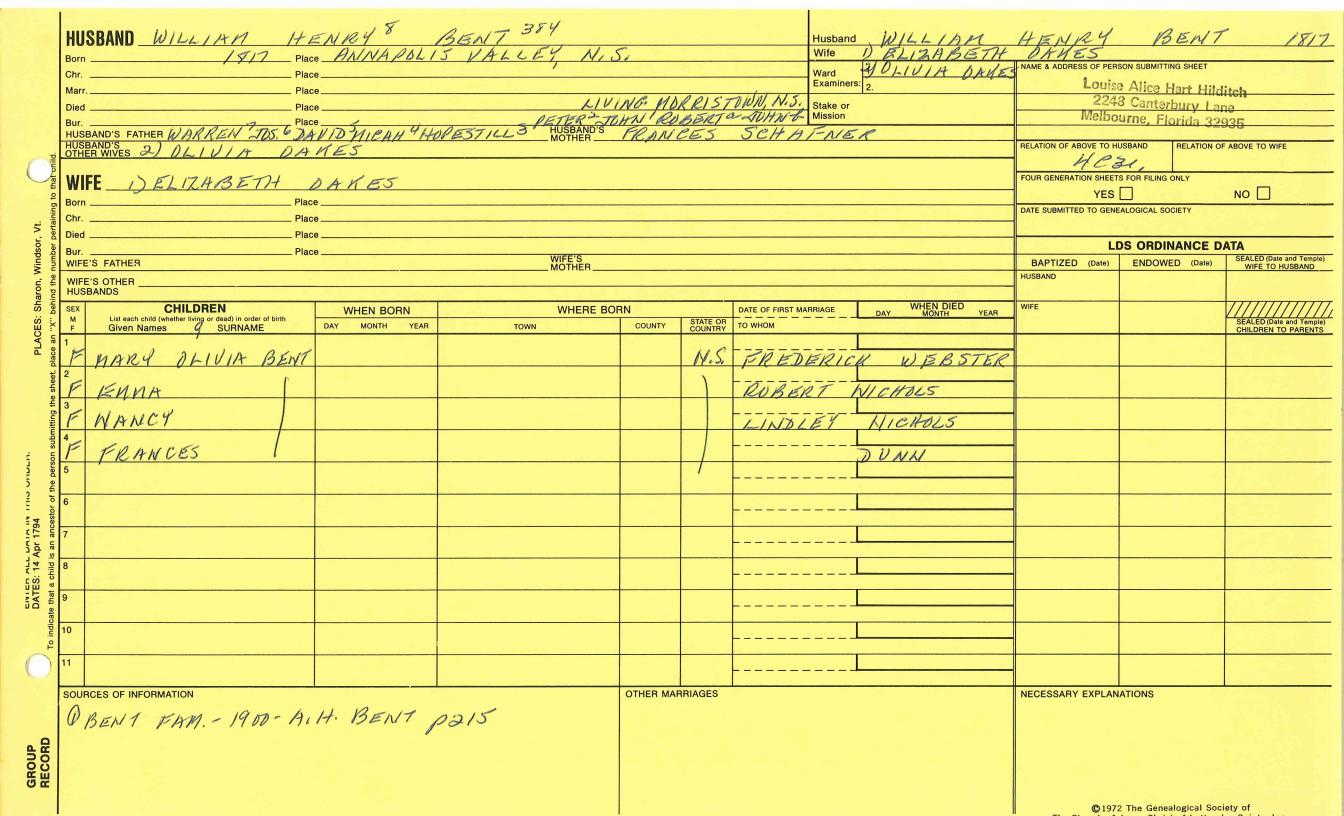 HUSBAND WILLIAM HENRY 8 BENT 384
Born 1817 Place ANNAPOLIS VALLEY, N.S.
Chr. Place
Marr. Place
Died Place LIVING MORRISTOWN, N.S.
Bur. Place PETER 2 JOHN 1 ROBERT a JOHN b
HUSBAND'S FATHER WARREN 7 JOS. 6 DAVID 5 MICAH 4 HOPESTILL 3 HUSBAND'S MOTHER FRANCES SCHAFNER
HUSBAND'S OTHER WIVES 2) OLIVIA OAKES
Husband WILLIAM HENRY BENT 1817
Wife 1) ELIZABETH OAKES
Ward Examiners: 2) OLIVIA OAKES
2.
Stake or Mission
NAME & ADDRESS OF PERSON SUBMITTING SHEET
Louise Alice Hart Hilditch
2243 Canterbury Lane
Melbourne, Florida 32935
RELATION OF ABOVE TO HUSBAND RELATION OF ABOVE TO WIFE
FOUR GENERATION SHEETS FOR FILING ONLY
YES NO
DATE SUBMITTED TO GENEALOGICAL SOCIETY
WIFE 1) ELIZABETH OAKES
Born Place
Chr. Place
Died Place
Bur. Place
WIFE'S FATHER WIFE'S MOTHER
WIFE'S OTHER HUSBANDS
LDS ORDINANCE DATA
BAPTIZED (Date) ENDOWED (Date) SEALED (Date and Temple) WIFE TO HUSBAND
HUSBAND
WIFE
SEALED (Date and Temple) CHILDREN TO PARENTS
SEX M F
CHILDREN
List each child (whether living or dead) in order of birth
Given Names 9 SURNAME
WHEN BORN
DAY MONTH YEAR
WHERE BORN
TOWN COUNTY STATE OR COUNTRY
DATE OF FIRST MARRIAGE
TO WHOM
WHEN DIED
DAY MONTH YEAR
1 F MARY OLIVIA BENT N.S. FREDERICK WEBSTER
2 F EMMA ROBERT NICHOLS
3 F NANCY LINDLEY NICHOLS
4 F FRANCES DUNN
5
6
7
8
9
10
11
SOURCES OF INFORMATION
① BENT FAM. - 1900 - A.H. BENT p215
OTHER MARRIAGES
NECESSARY EXPLANATIONS
©1972 The Genealogical Society of
GROUP RECORD
ENTER ALL DATA IN THIS ORDER:
DATES: 14 Apr 1794
PLACES: Sharon, Windsor, Vt.
To indicate that a child is an ancestor of the person submitting the sheet, place an "X" behind the number pertaining to that child.